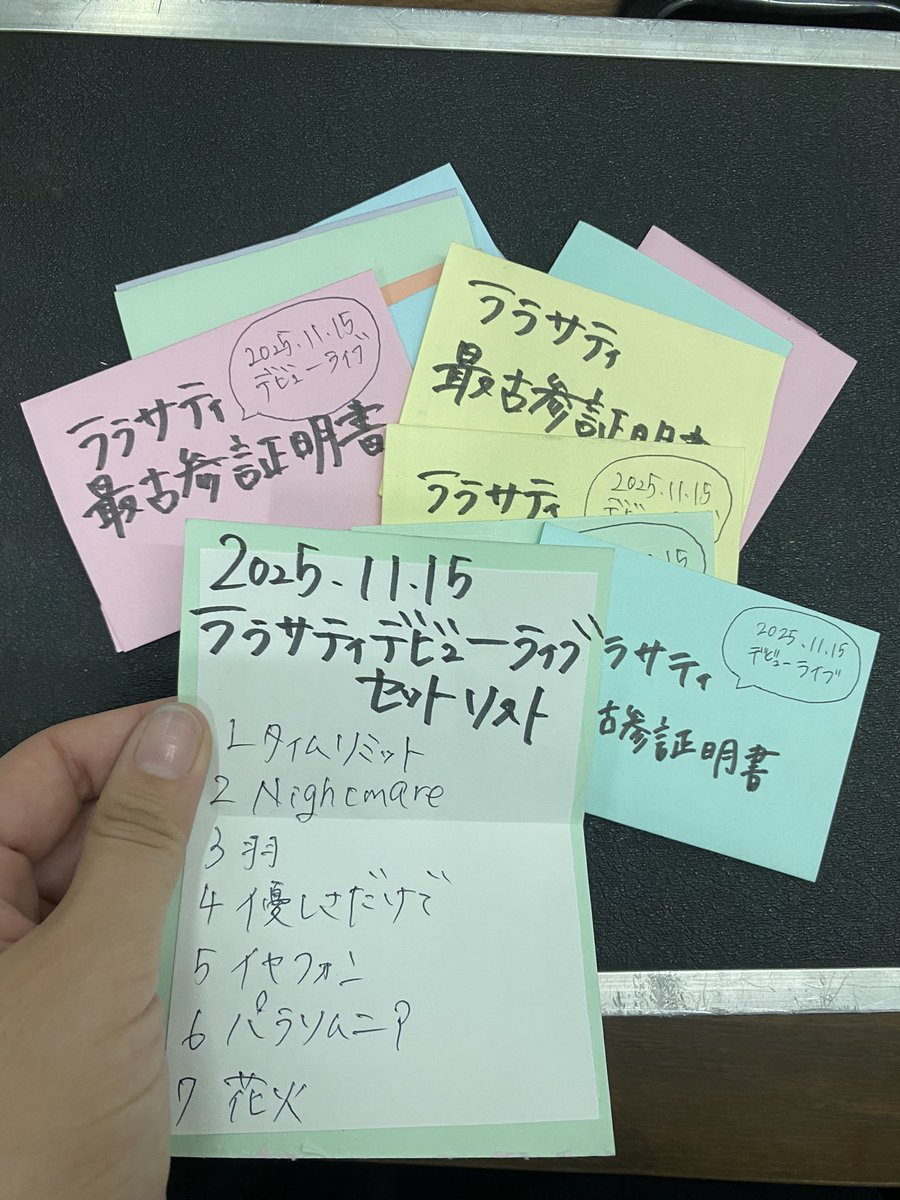 ララサティ
最古参証明書
2025.11.15
デビューライブ
ララサティ
最古参証明書
ララサティ
2025.11.15
デビ
.15
2025.11.15
デビューライブ
ラサティ
古参証明書
2025.11.15
ララサティデビューライブ
セットリスト
1 タイムリミット
2 Nighcmare
3 羽
4 優しさだけで
5 イヤフォン
6 パラソムニア
7 花火